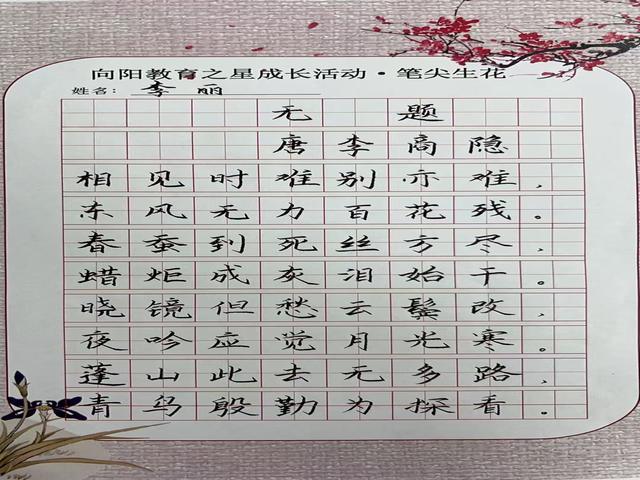 向阳教育之星成长活动·笔尖生花
姓名：李丽
无题
唐李商隐
相见时难别亦难，
东风无力百花残。
春蚕到死丝方尽，
蜡炬成灰泪始干。
晓镜但愁云鬓改，
夜吟应觉月光寒。
蓬山此去无多路，
青鸟殷勤为探看。